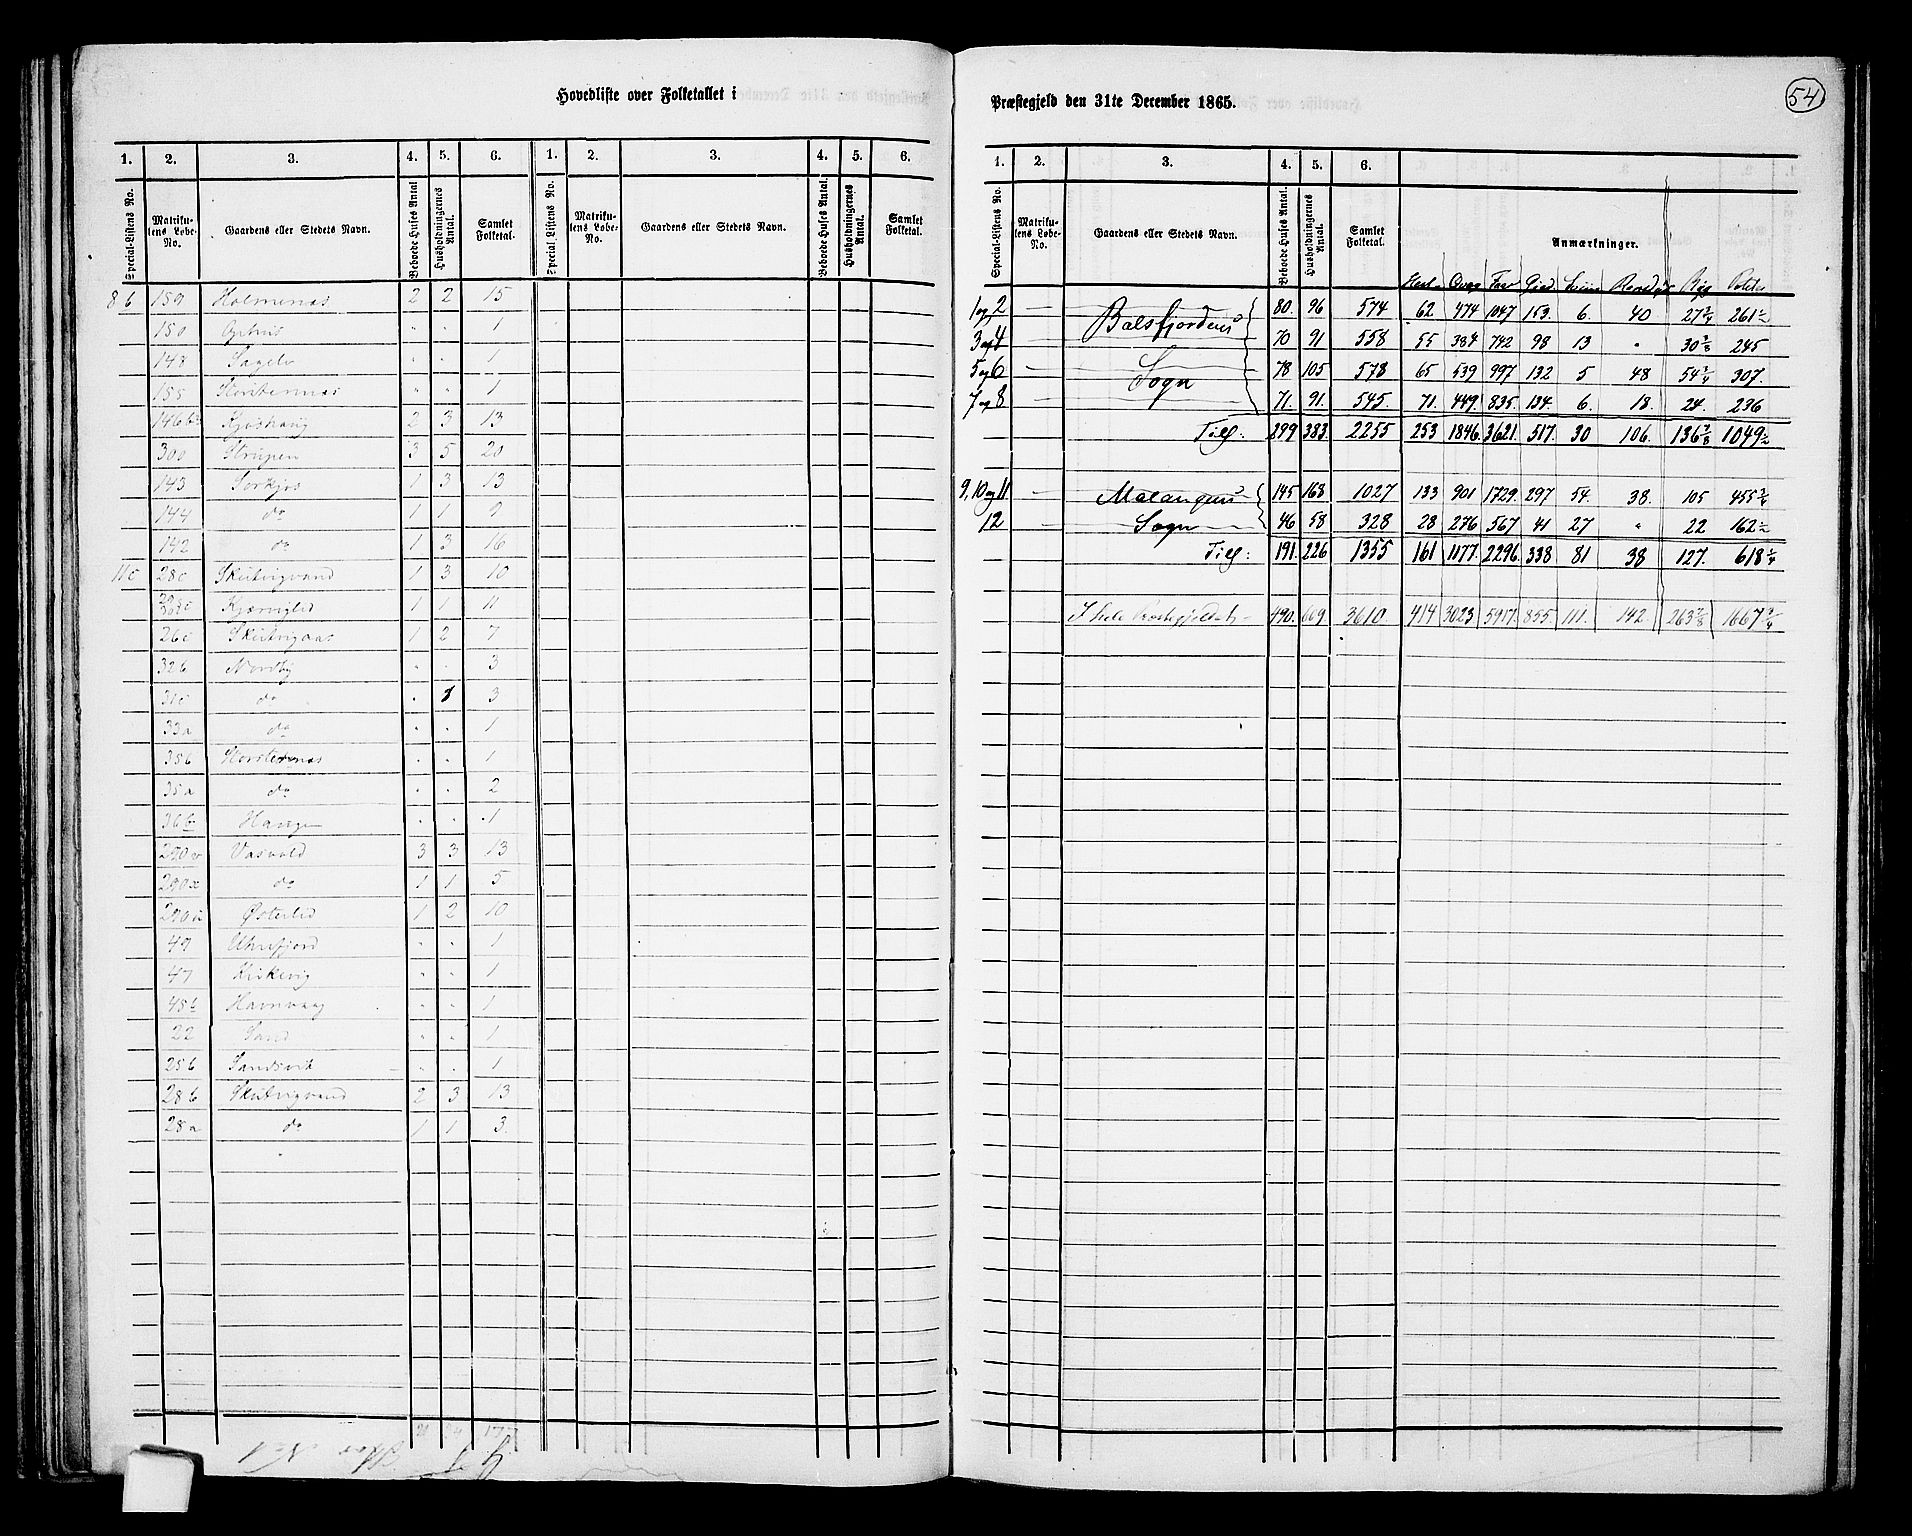 Hovedliste over Folketallet i
Præstegjeld den 31te December 1865.
54
1. 2. 3. 4. 5. 6. 1. 2. 3. 4. 5. 6.
Special-Listens No. Matrikulens Løbe-No. Gaardens eller Stedets Navn. Beboede Huses Antal Husholdningernes Antal. Samlet Folketal. Special Listens No. Matrikulens Løbe-No. Gaardens eller Stedets Navn. Beboede Huses Antal. Husholdningernes Antal. Samlet Folketal.
8b 159 Holmenæs 2 2 15
150 " " 1
148 Sagelv " " 1
155 " " 1
146b 2 3 13
300 Strupen 3 5 20
143 Sørkjos 1 3 13
144 do 1 1 9
142 do 1 3 16
11c 28c Skutvigvand 1 3 10
1 1 11
26c Skutvigaas 1 2 7
32b Nordby " " 3
31c do " 1 3
33a do " " 1
35b " " 1
35a do " " 2
36b Haugen " " 1
290v Vasvold 3 3 13
290x do 1 1 5
290u Østerlid 1 2 10
49 " " 1
47 Kirkevig " " 1
45b Havnvaag " " 1
22 Sand " " 1
25b Sandsvik " " 1
28b Skutvigvand 2 3 13
28a do 1 1 3.
1. 2. 3. 4. 5. 6.
Special-Listens No. Matrikulens Løbe-No. Gaardens eller Stedets Navn. Beboede Huses Antal. Husholdningernes Antal. Samlet Folketal. Anmærkninger.
Heste Qvæg Faar Gjed Sviin Rensdyr Byg Poteter
1 og 2 — Balsfjordens 80. 96 574 62 474 1047 153. 6. 40 27¾ 261½
3 og 4 — 70 91 558 55 384 742 98 13 " 30⅜ 245
5 og 6 — Sogn 78 105 578 65 539 997 132 5 48 54¼ 307.
7 og 8 — 71. 91. 545. 71. 449. 835. 134. 6. 18. 24. 236
Tils: 299 383. 2255 253 1846. 3621. 517. 30 106. 136⅜ 1049½
9, 10 og 11 — Malangens 145 168 1027 133 901 1729. 297 54. 38. 105 455¾
12 — Sogn 46 58 328 28 276 567 41 27 " 22 162½
Tils: 191. 226 1355 161 1177. 2296. 338 81 38 127. 618¼
I hele Præstegjeldet 490. 609. 3610. 414 3023 5917. 855. 111. 142. 263⅜ 1667¾